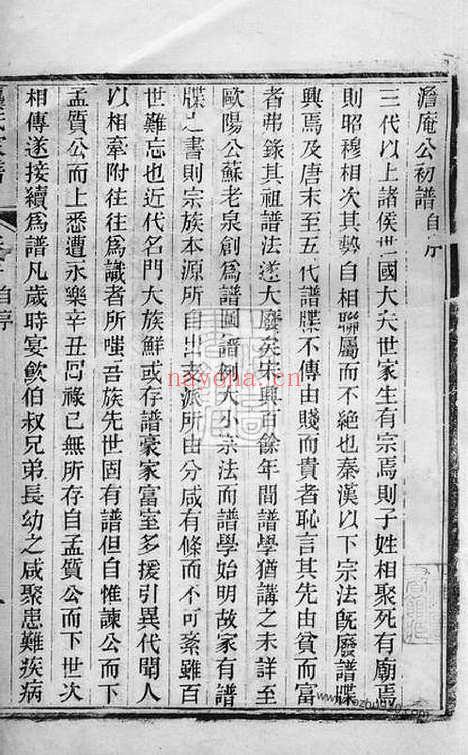 澹庵公初譜自序
三代以上諸侯世國大夫世家生有宗焉則子姓相聚死有廟焉
則昭穆相次其勢自相聯屬而不絶也秦漢以下宗法旣廢譜牒
興焉及唐末至五代譜牒不傳由賤而貴者恥言其先由貧而富
者弗錄其祖譜法遂大廢矣宋興百餘年間譜學猶講之未詳至
歐陽公蘇老泉創爲譜圖譜例大小宗法而譜學始明故家有譜
牒之書則宗族本源所自出支派所由分咸有條而不可紊雖百
世難忘也近代名門大族鮮或存譜豪家富室多援引異代聞人
以相牽附往往爲識者所嗤吾族先世固有譜但自惟諫公而下
孟質公而上悉遭永樂辛丑囘祿已無所存自孟質公而下世次
相傳遂接續爲譜凡歲時宴飮伯叔兄弟長幼之咸聚患難疾病
自序
nayona.cn